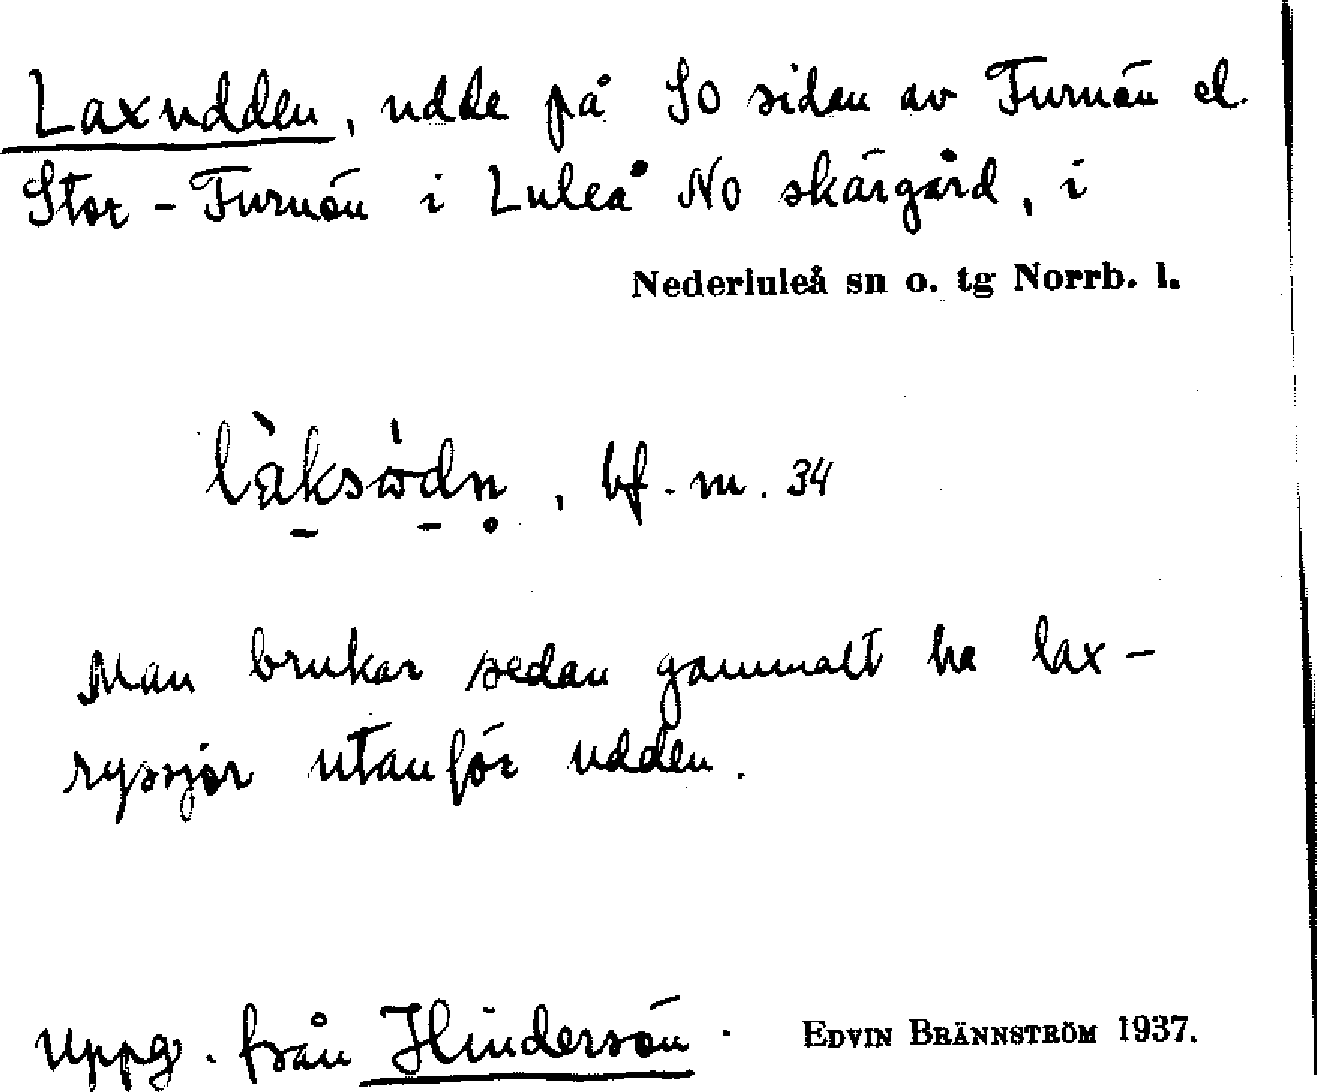 Laxudden, udde på SO sidan av Furuön el.
Stor-Furuön i Luleå NO skärgård, i
Nederluleå sn o. tg Norrb. l.
, bf. m. 34
Man brukar sedan gammalt ha lax-
ryssjor utanför udden.
Uppg. från Hindersön. EDVIN BRÄNNSTRÖM 1937.